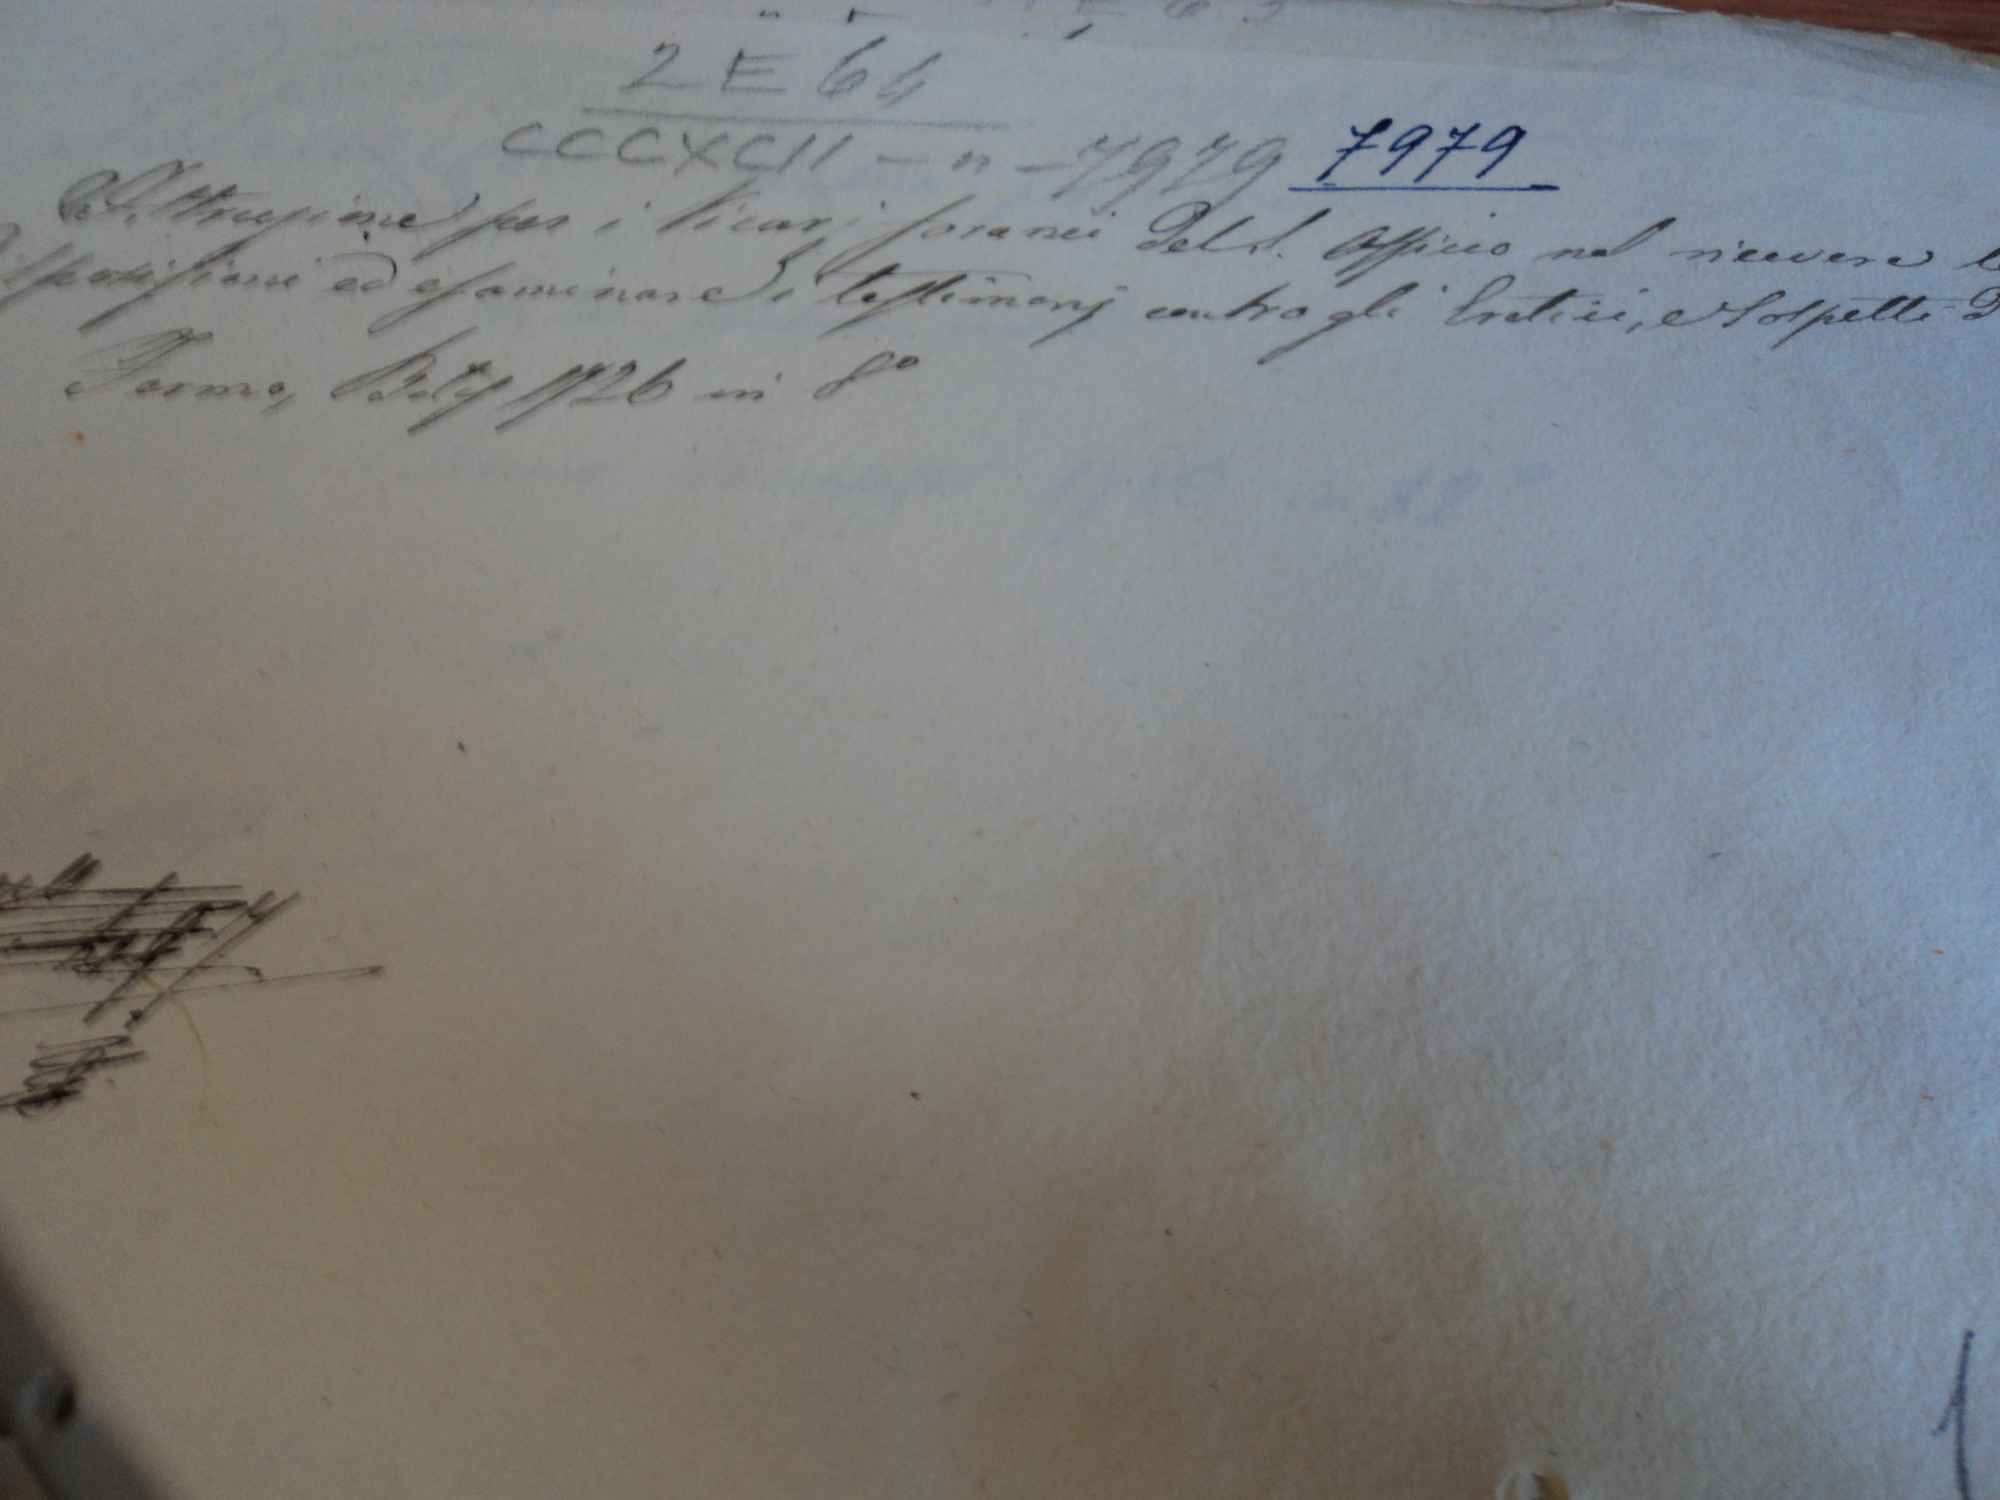 2 E 64
CCCXCII — n — 7979 7979
Istruzione per i Vicarj foranei del S. Officio nel ricevere le
disposizioni ed esaminare i testimonj contro gli Eretici, e Sospetti d
Fermo, 1726 in 8º
1